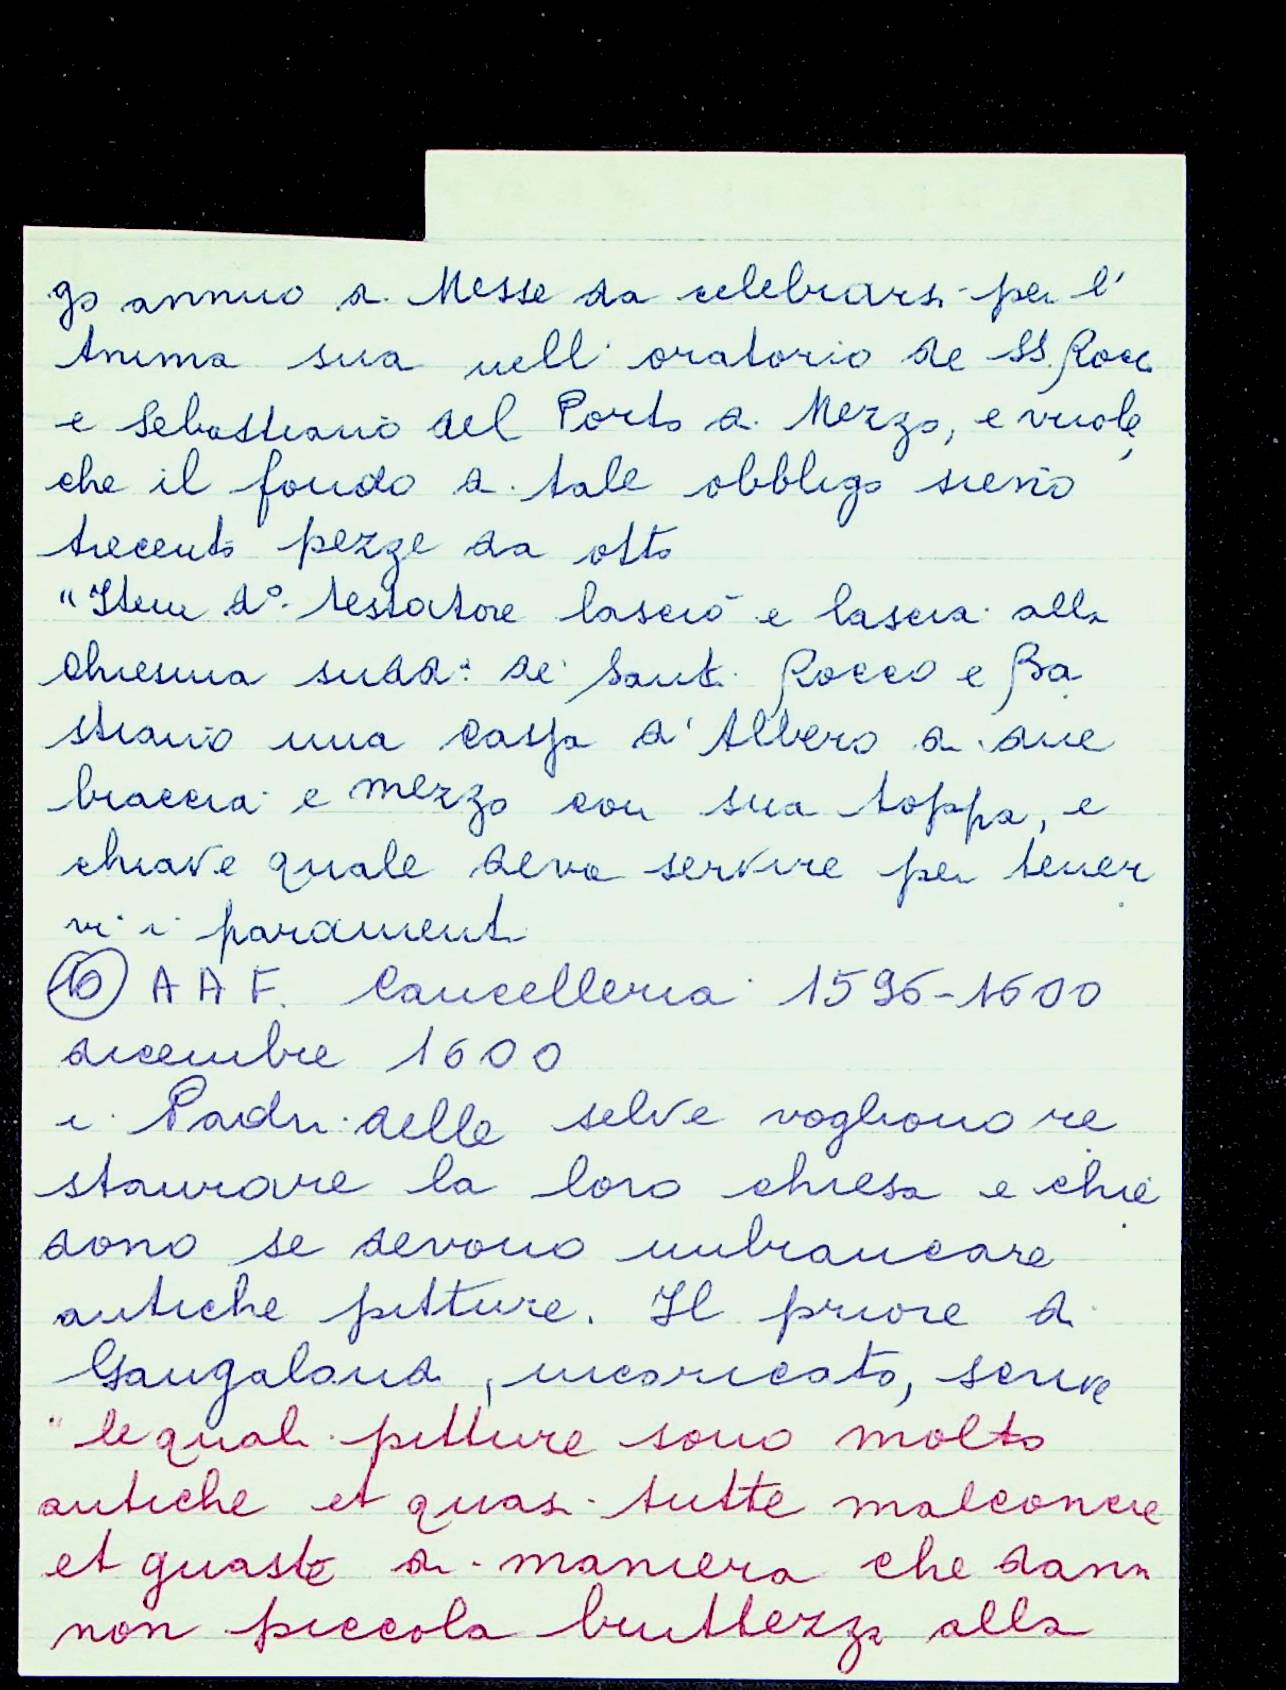 go annuo di Messe da celebrarsi per l'
Anima sua nell' oratorio de SS. Rocco
e Sebastiano del Porto di Mezzo, e vuole,
che il fondo di tale obbligo sieno
trecento pezze da otto
"Item d.o testatore lasciò e lascia alla
Chiesina sudd.a de' Santi Rocco e Ba
stiano una cassa d'Albero di due
braccia e mezzo con sua toppa, e
chiave quale deva servire per tener
vi i paramenti
16 A A F. Cancelleria 1596-1600
dicembre 1600
i Padri delle selve vogliono re
staurare la loro chiesa e chie
dono se devono imbiancare
antiche pitture. Il priore di
Gangalandi, incaricato, scrive
"le quali pitture sono molto
antiche et quasi tutte malconcie
et guaste di maniera che danno
non piccola bruttezza alla